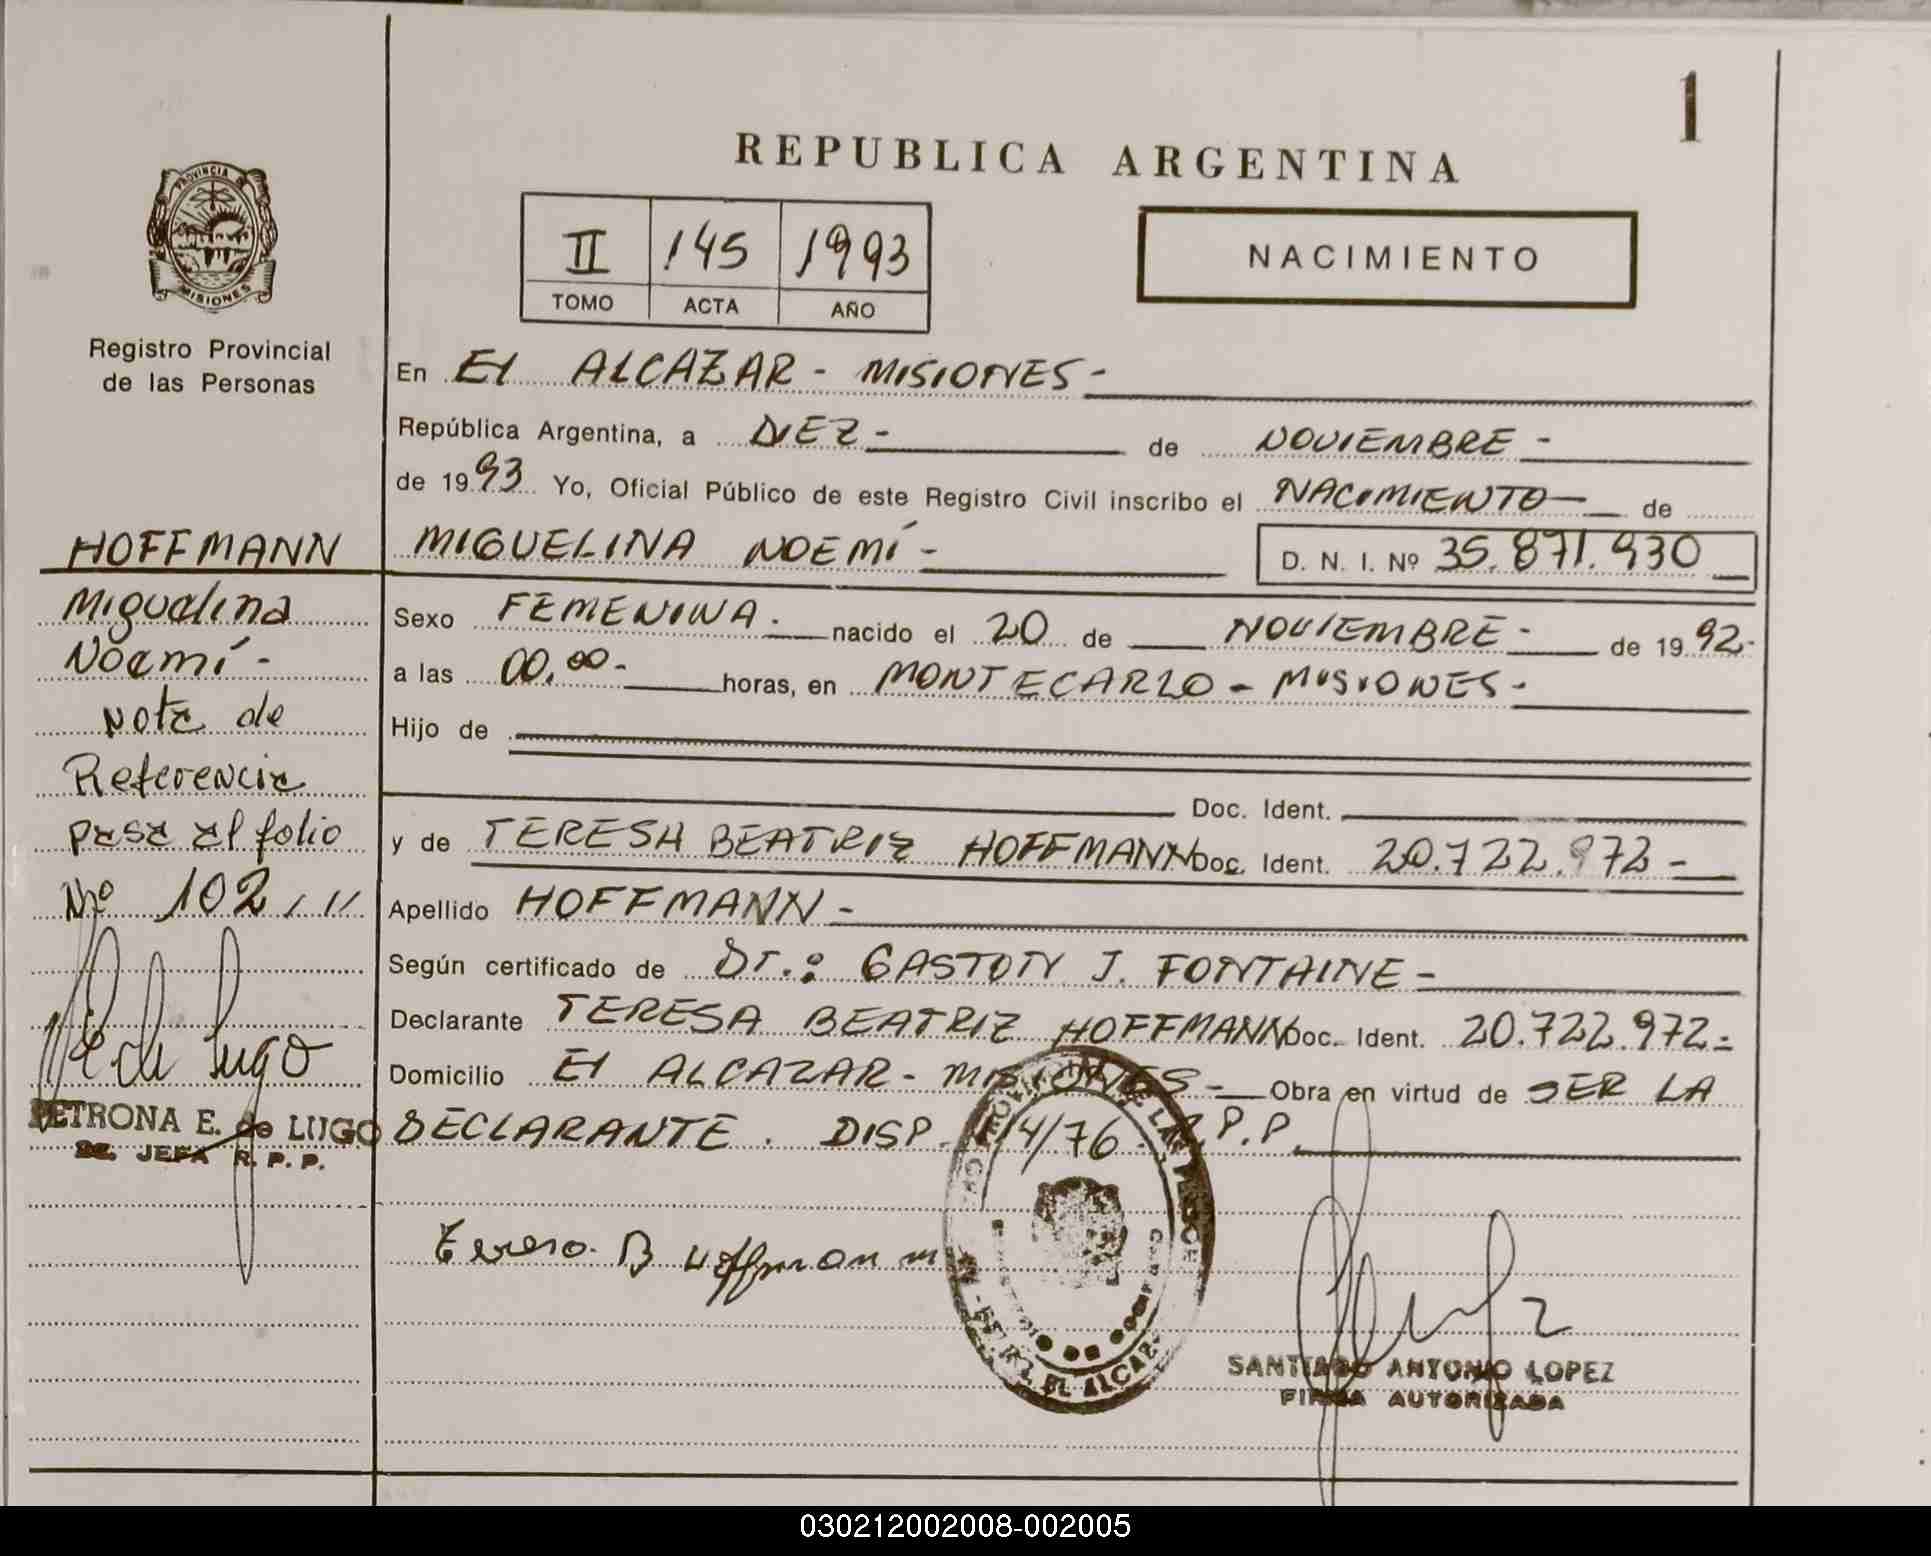 1
REPUBLICA ARGENTINA
PROVINCIA DE
MISIONES
II 145 1993
TOMO ACTA AÑO
NACIMIENTO
Registro Provincial
de las Personas
En El ALCAZAR - MISIONES -
República Argentina, a DIEZ - de NOVIEMBRE -
de 1993 Yo, Oficial Público de este Registro Civil inscribo el NACIMIENTO de
MIGUELINA NOEMÍ - D. N. I. Nº 35.871.930
Sexo FEMENINA. nacido el 20 de NOVIEMBRE - de 1992-
a las 00,00- horas, en MONTECARLO - MISIONES -
Hijo de
Doc. Ident.
y de TERESA BEATRIZ HOFFMANN Doc. Ident. 20.722.972 -
Apellido HOFFMANN -
Según certificado de Dr.: GASTON J. FONTAINE -
Declarante TERESA BEATRIZ HOFFMANN Doc. Ident. 20.722.972-
Domicilio El ALCAZAR - MISIONES - Obra en virtud de SER LA
DECLARANTE. DISP. 114/76. R.P.P.
HOFFMANN
Miguelina
Noemí -
Nota de
Referencia
pasa al folio
Nº 102, //
PETRONA E. de LUGO
JEFA R. P. P.
EL ALCAZAR
SANTIAGO ANTONIO LOPEZ
FIRMA AUTORIZADA
030212002008-002005